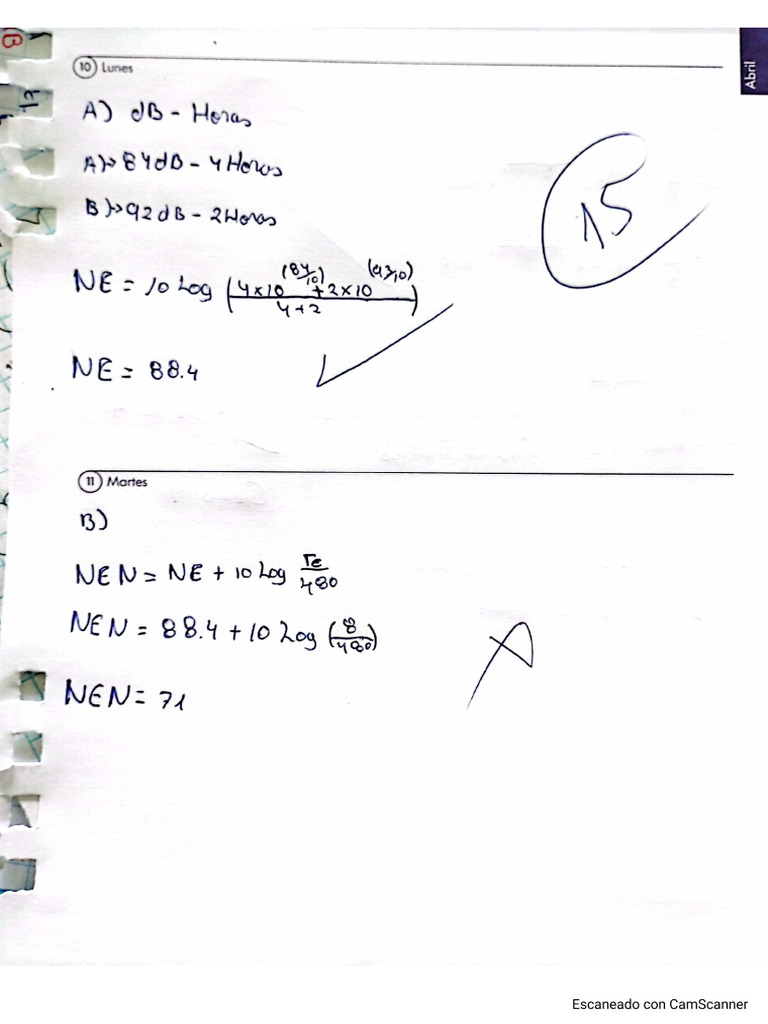 Abril
10 Lunes
A) dB - Horas
A)→ 84dB - 4 Horas
B)→ 92dB - 2 Horas
15
NE = 10 Log (4 x 10^(84/10) + 2 x 10^(92/10) / 4 + 2)
NE = 88.4
11 Martes
B)
NEN = NE + 10 Log Te/480
NEN = 88.4 + 10 Log (8/480)
NEN = 71
Escaneado con CamScanner